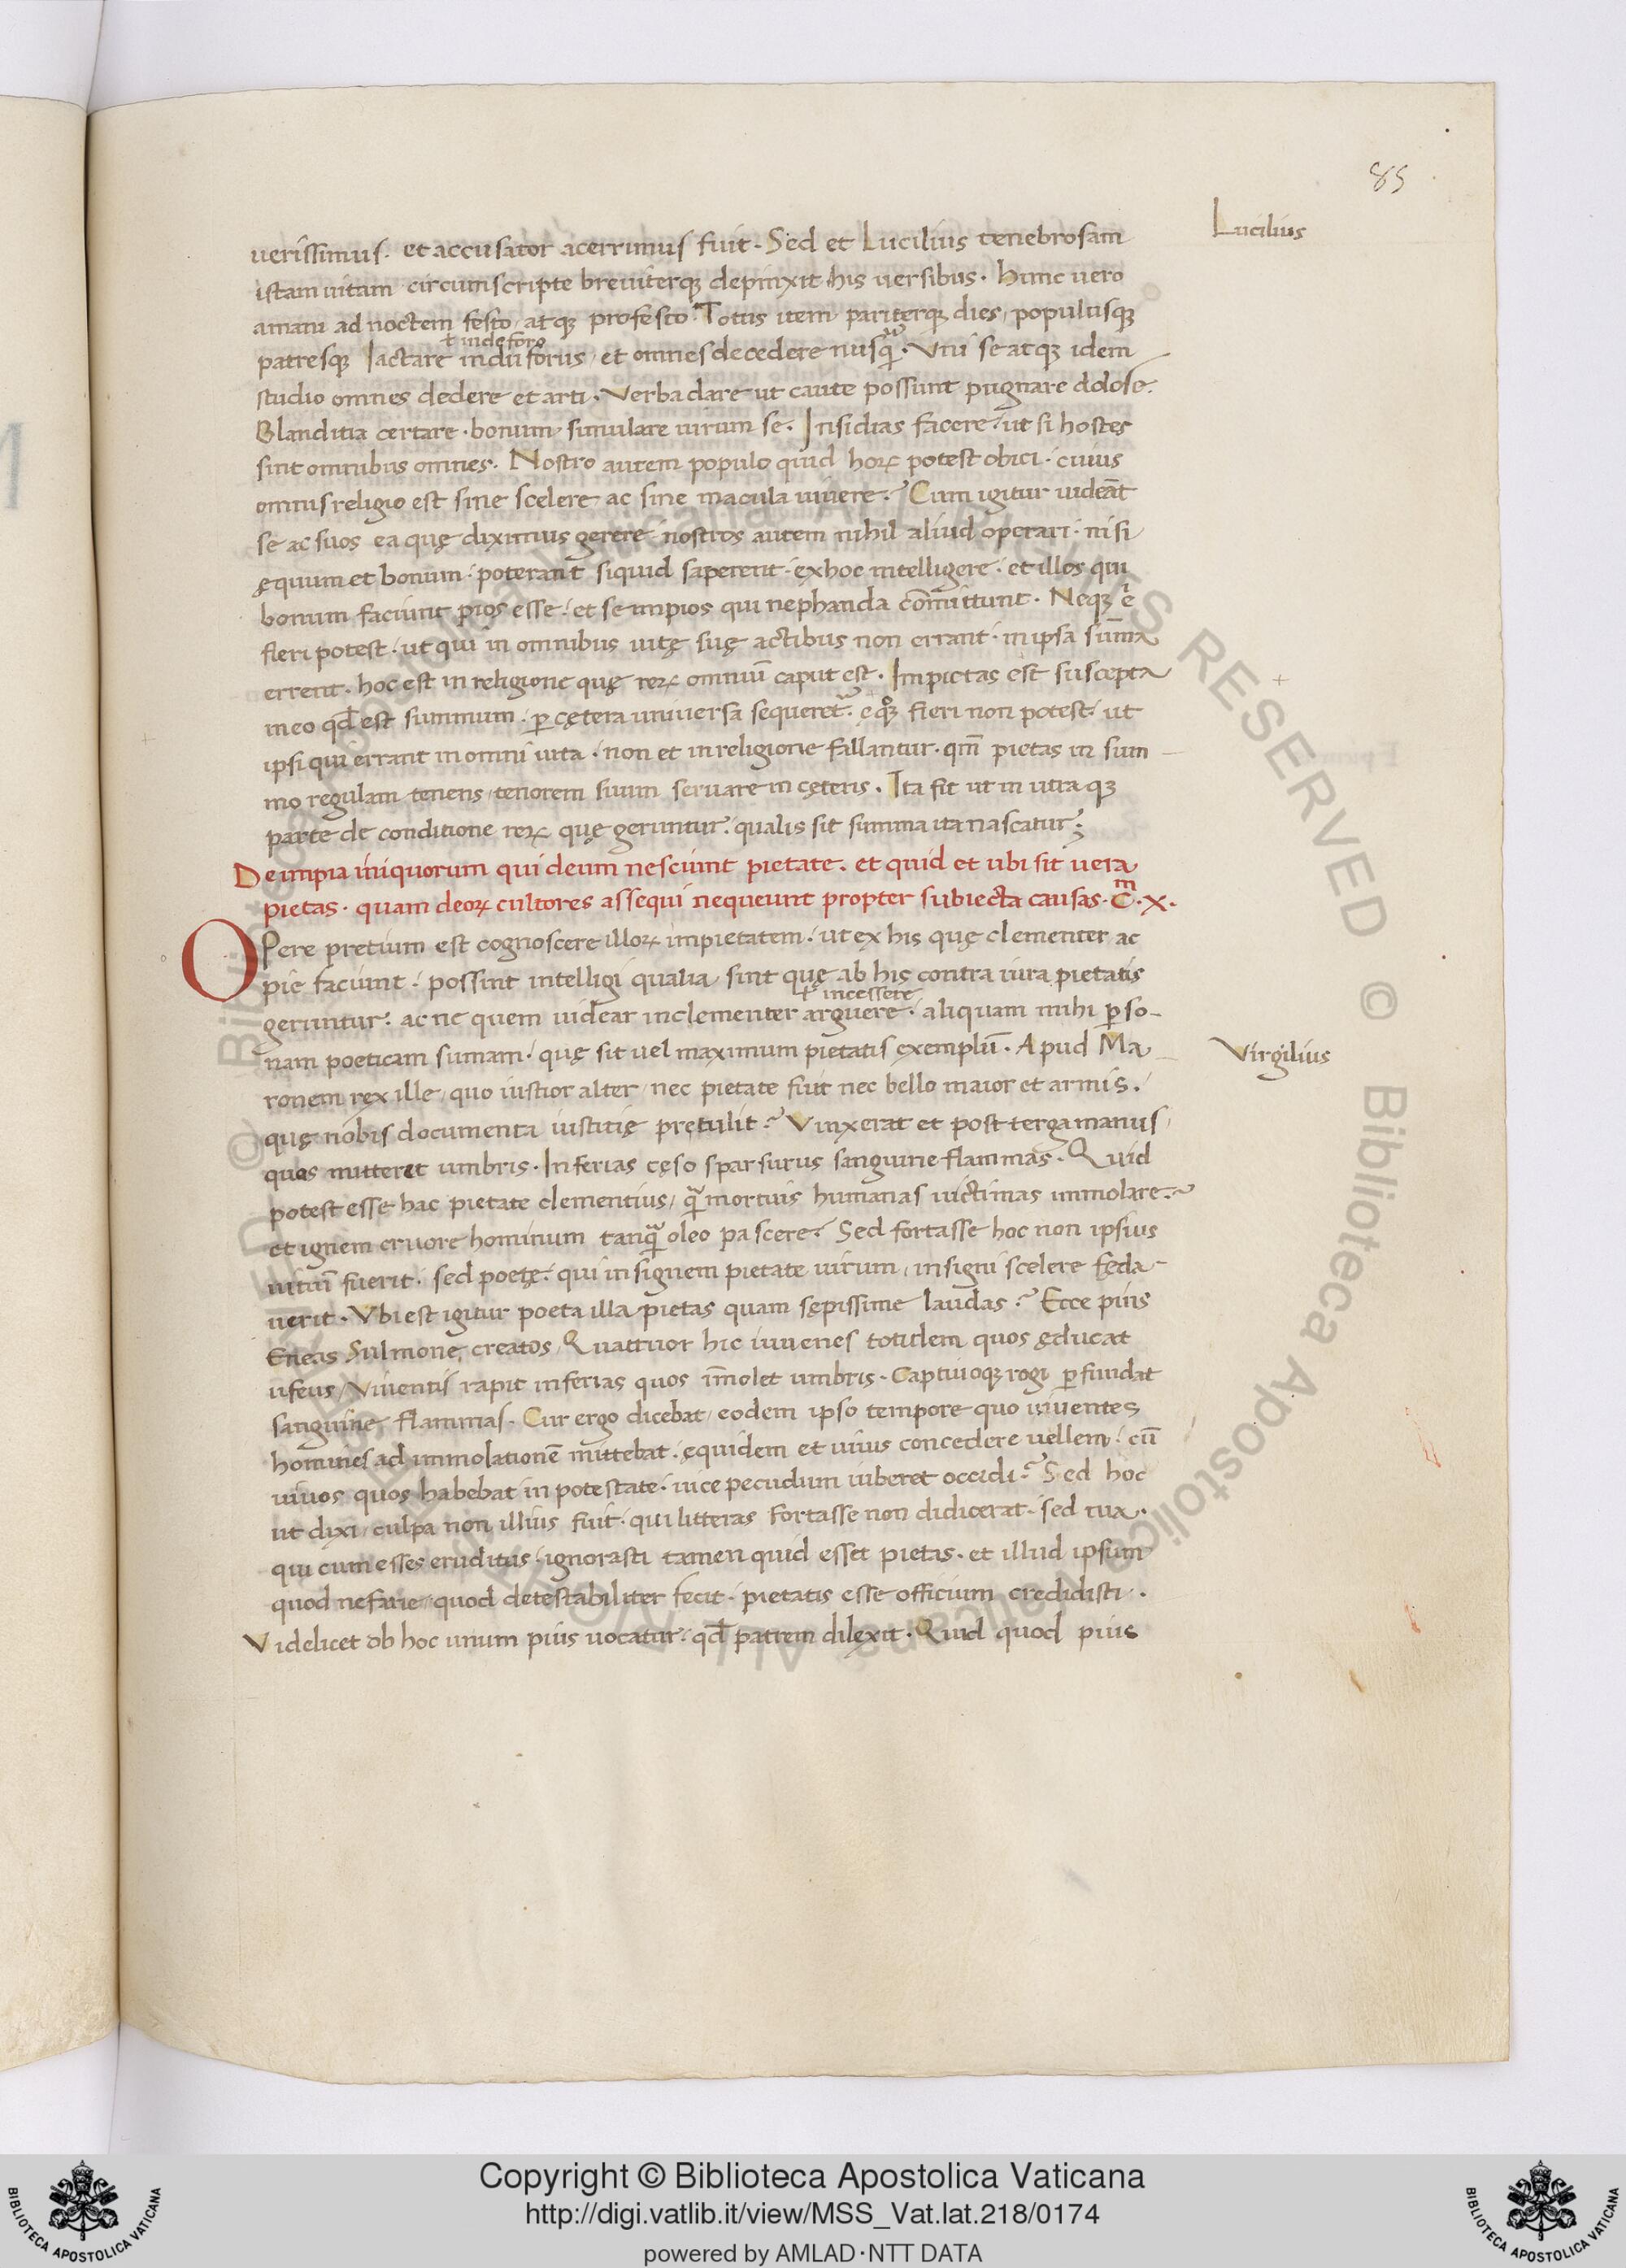 85
Lucilius
uerissimus. et accusator acerrimus fuit. Sed et Lucilius tenebrosam
istam uitam circumscripte breuiterq; depinxit his uersibus. Hunc uero
amani ad noctem festo, atq; profesto. Totus item pariterq; dies, populusq;
ł inde foro
patresq; Iactare indu forus, et omnes decedere nusq̃. Vni se atq; idem
studio omnes dedere et arti. Verba dare ut caute possunt pugnare dolose.
Blanditia certare. bonum simulare uirum se. Insidias facere. ut si hostes
sint omnibus omnes. Nostro autem populo quid hoꝝ potest obici. cuius
omnis religio est sine scelere ac sine macula uiuere? Cum igitur uideãt
se ac suos ea quę diximus gerere. nostros autem nihil aliud operari. nisi
ęquum et bonum. poterant siquid saperent. ex hoc intelligere. et illos qui
bonum faciunt pios esse. et se impios qui nephanda cõmittunt. Neq; ẽ
fieri potest. ut qui in omnibus uitę suę actibus non errant. in ipsa sum̃a
errent. hoc est in religione quę reꝝ omniũ caput est. Impietas est suscepta
in eo qđ est summum. ꝑ cętera uniuersa sequeret᷑. ęq; fieri non potest. ut
ipsi qui errant in omni uita. non et in religione fallantur. qm̃ pietas in sum
mo regulam tenens, tenorem suum seruare in cęteris. Ita fit ut in utraq;
parte de conditione reꝝ quę geruntur. qualis sit summa ita nascatur;
De impia iniquorum qui deum nesciunt pietate. et quid et ubi sit uera
pietas. quam deoꝝ cultores assequi nequeunt propter subiecta causas. C.m X.
OPere pretium est cognoscere illoꝝ impietatem. ut ex his quę clementer ac
pie faciunt. possint intelligi qualia sint quę ab his contra iura pietatis
ł incessere
geruntur. ac ne quem uidear inclementer arguere. aliquam mihi ꝑso-
nam poeticam sumam. quę sit uel maximum pietatis exemplũ. Apud Ma
Virgilius
ronem rex ille, quo iustior alter, nec pietate fuit nec bello maior et armis.
quę nobis documenta iustitię pretulit? Vinxerat et post terga manus,
quos mitteret umbris. Inferias cęso sparsurus sanguine flammas. Quid
potest esse hac pietate clementius, q̃ mortuis humanas uictimas immolare?
et ignem cruore hominum tanq̃ oleo pascere? Sed fortasse hoc non ipsius
uitiũ fuerit. sed poetę. qui insignem pietate uirum, insigni scelere feda-
uerit. Vbi est igitur poeta illa pietas quam sępissime laudas? Ecce pius
Eneas Sulmone creatos, Quattuor hic iuuenes totidem quos educat
ufeus, Viuentis rapit inferias quos im̃olet umbris. Captiuoq; rogi ꝑfundat
sanguine flammas. Cur ergo dicebat, eodem ipso tempore quo uiuentes
homines ad immolationẽ mittebat. equidem et uiuis concedere uellem. cũ
uiuos quos habebat in potestate. uice pecudum iuberet occidi? Sed hoc
ut dixi, culpa non illius fuit. qui litteras fortasse non didicerat. sed tua.
qui cum esses eruditus. ignorasti tamen quid esset pietas. et illud ipsum
quod nefarie, quod detestabiliter fecit. pietatis esse officium credidisti.
Videlicet ob hoc unum pius uocatur. qđ patrem dilexit. Quid quod pius
Copyright © Biblioteca Apostolica Vaticana
http://digi.vatlib.it/view/MSS_Vat.lat.218/0174
powered by AMLAD·NTT DATA